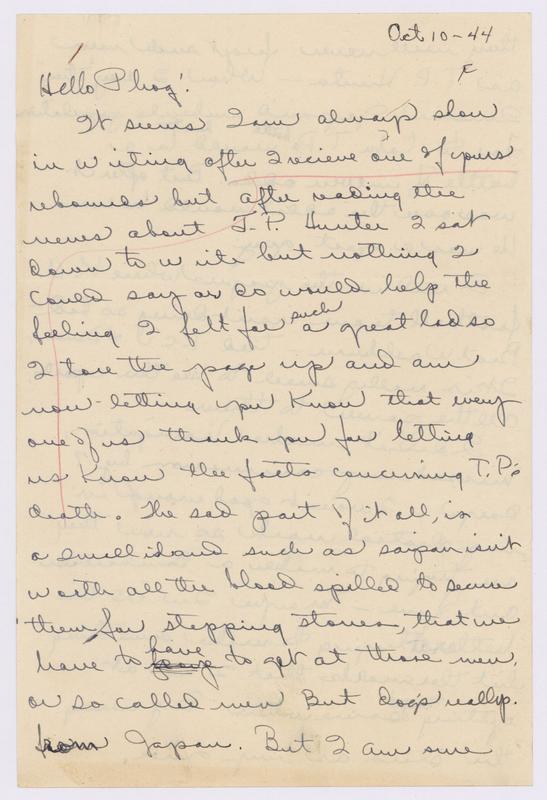 Oct 10-44
F
Hello Phog!
It seems I am always slow
in writing after I recieve one of yours
rebounds but after reading the
news about T.P. Hunter I sat
down to write but nothing I
could say or do would help the
feeling I felt for such a great lad so
I tore the page up and am
now letting you know that every
one of us thank you for letting
us know the facts concerning T.P.'s
death. The sad part of it all, is
a small island such as saipan isn't
worth all the blood spilled to secure
them for stepping stones, that we
have to have to get at those men,
or so called men But dogs really.
from Japan. But I am sure